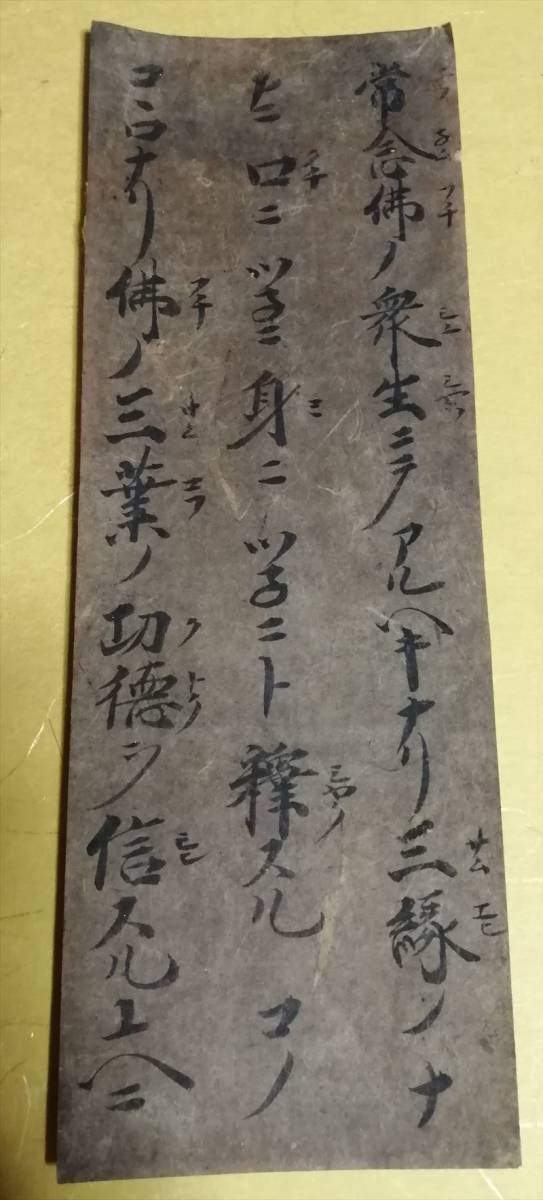 常念佛ノ衆生ニテアルヘキナリ三縁ノナ
カニ口ニツネニ身ニツネニト釋スルコノ
コヽロナリ佛ノ三業ノ功德ヲ信スルユヘニ